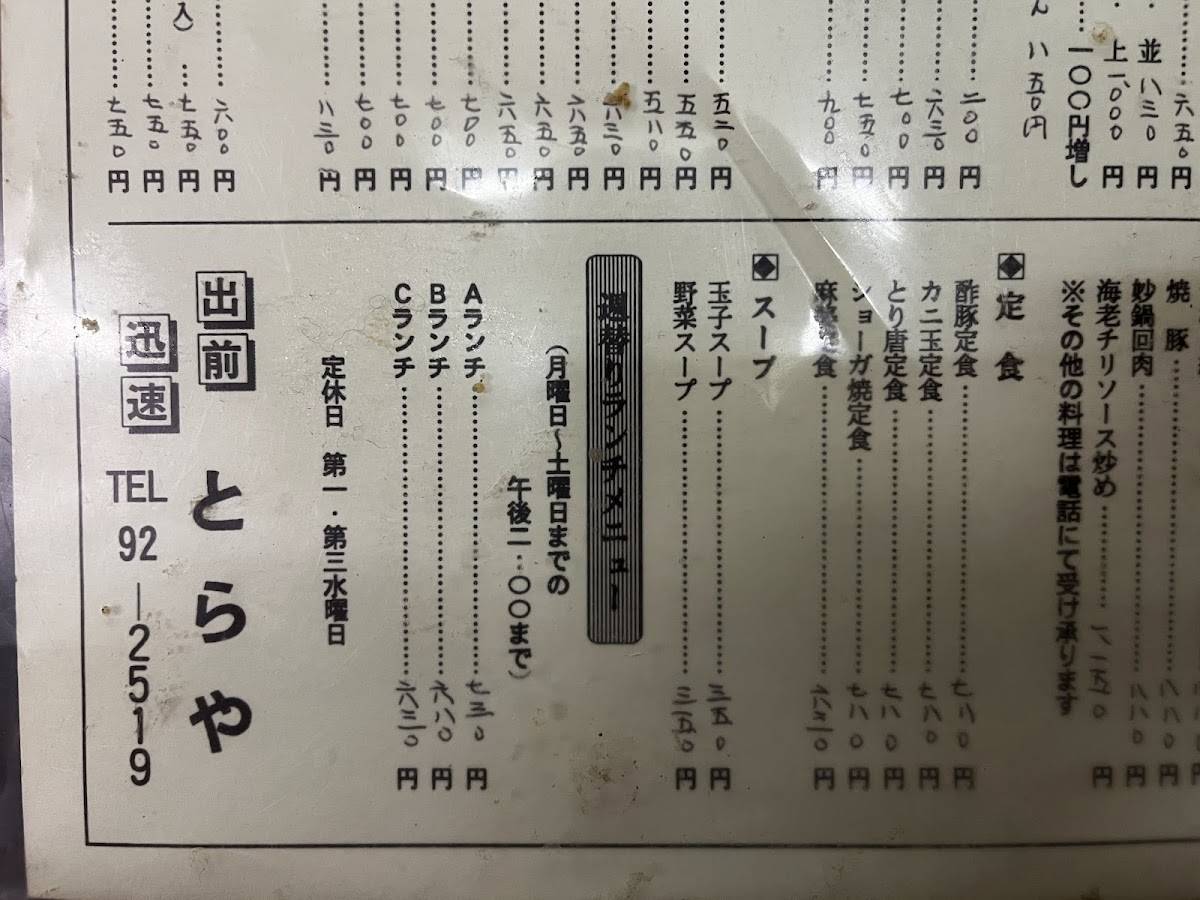 六五〇円
並 八三〇円
上 一、〇〇〇円
一〇〇円増し
八五〇円
二〇〇円
六三〇円
七〇〇円
七五〇円
九〇〇円
五二〇円
五五〇円
五八〇円
八三〇円
六五〇円
六五〇円
六五〇円
七〇〇円
七〇〇円
七〇〇円
七〇〇円
八三〇円
六〇〇円
入) 七五〇円
七五〇円
七五〇円
焼豚……八八〇円
炒鍋回肉……八八〇円
海老チリソース炒め……一、一五〇円
※その他の料理は電話にて受け承ります
◆定食
酢豚定食……七八〇円
カニ玉定食……七八〇円
とり唐定食……七八〇円
ショーガ焼定食……七八〇円
麻婆定食……六三〇円
◆スープ
玉子スープ……三五〇円
野菜スープ……三五〇円
週替りランチメニュー
(月曜日〜土曜日までの
午後二:〇〇まで)
Aランチ……七三〇円
Bランチ……六八〇円
Cランチ……六三〇円
定休日 第一・第三水曜日
出前 とらや
迅速 TEL 92―2519